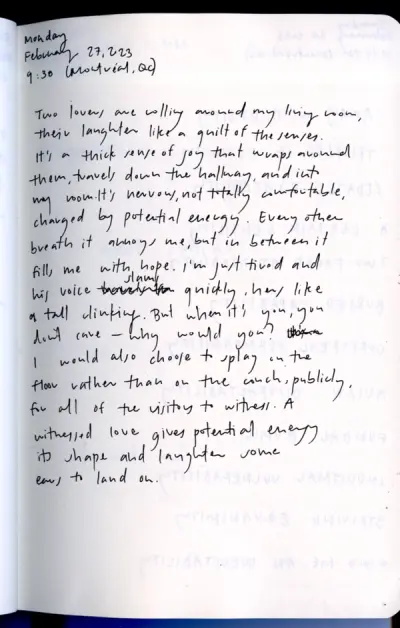 Monday
February 27, 2023
9:30 (Montréal, Qc)
Two lovers are rolling around my living room,
their laughter like a quilt of the senses.
It's a thick sense of joy that wraps around
them, travels down the hallway, and into
my room. It's nervous, not totally comfortable,
charged by potential energy. Every other
breath it annoys me, but in between it
fills me with hope. I'm just tired and
his voice slams quickly, hers like
a tall clinking. But when it's you, you
don't care – why would you?
I would also choose to splay on the
floor rather than on the couch, publicly,
for all of the visitors to witness. A
witnessed love gives potential energy
its shape and laughter some
ears to land on.